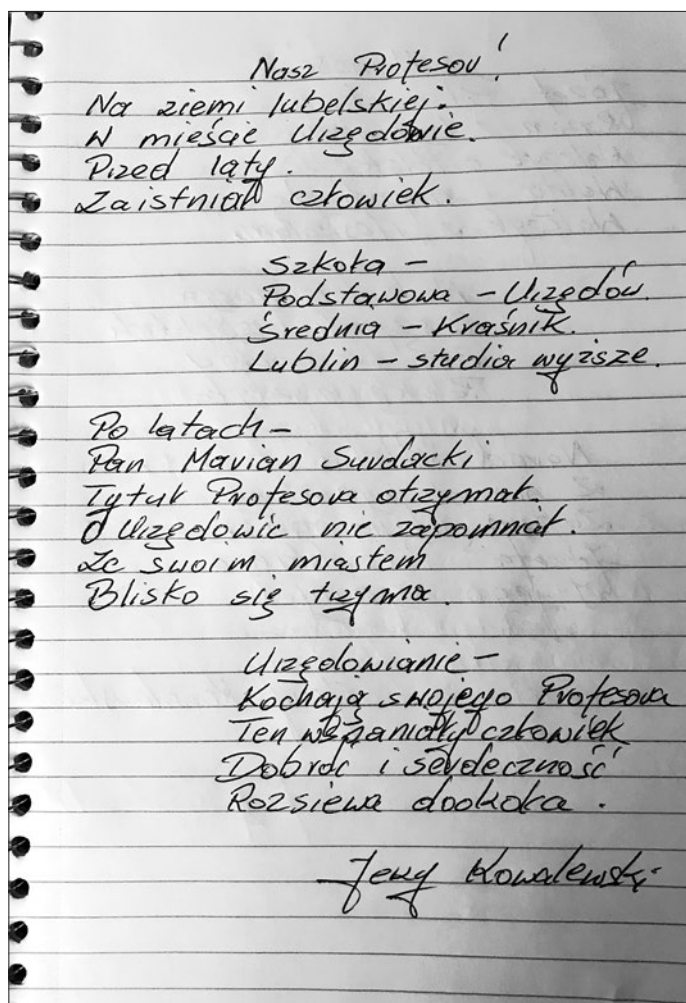 Nasz Profesor!
Na ziemi lubelskiej.
W mieście Urzędowie.
Przed laty.
Zaistniał człowiek.
Szkoła –
Podstawowa – Urzędów.
Średnia – Kraśnik.
Lublin – studia wyższe.
Po latach –
Pan Marian Surdacki
Tytuł Profesora otrzymał.
O Urzędowie nie zapomniał.
Ze swoim miastem
Blisko się trzyma.
Urzędowianie –
Kochają swojego Profesora
Ten wspaniały człowiek
Dobroć i serdeczność
Rozsiewa dookoła.
Jerzy Kowalewski